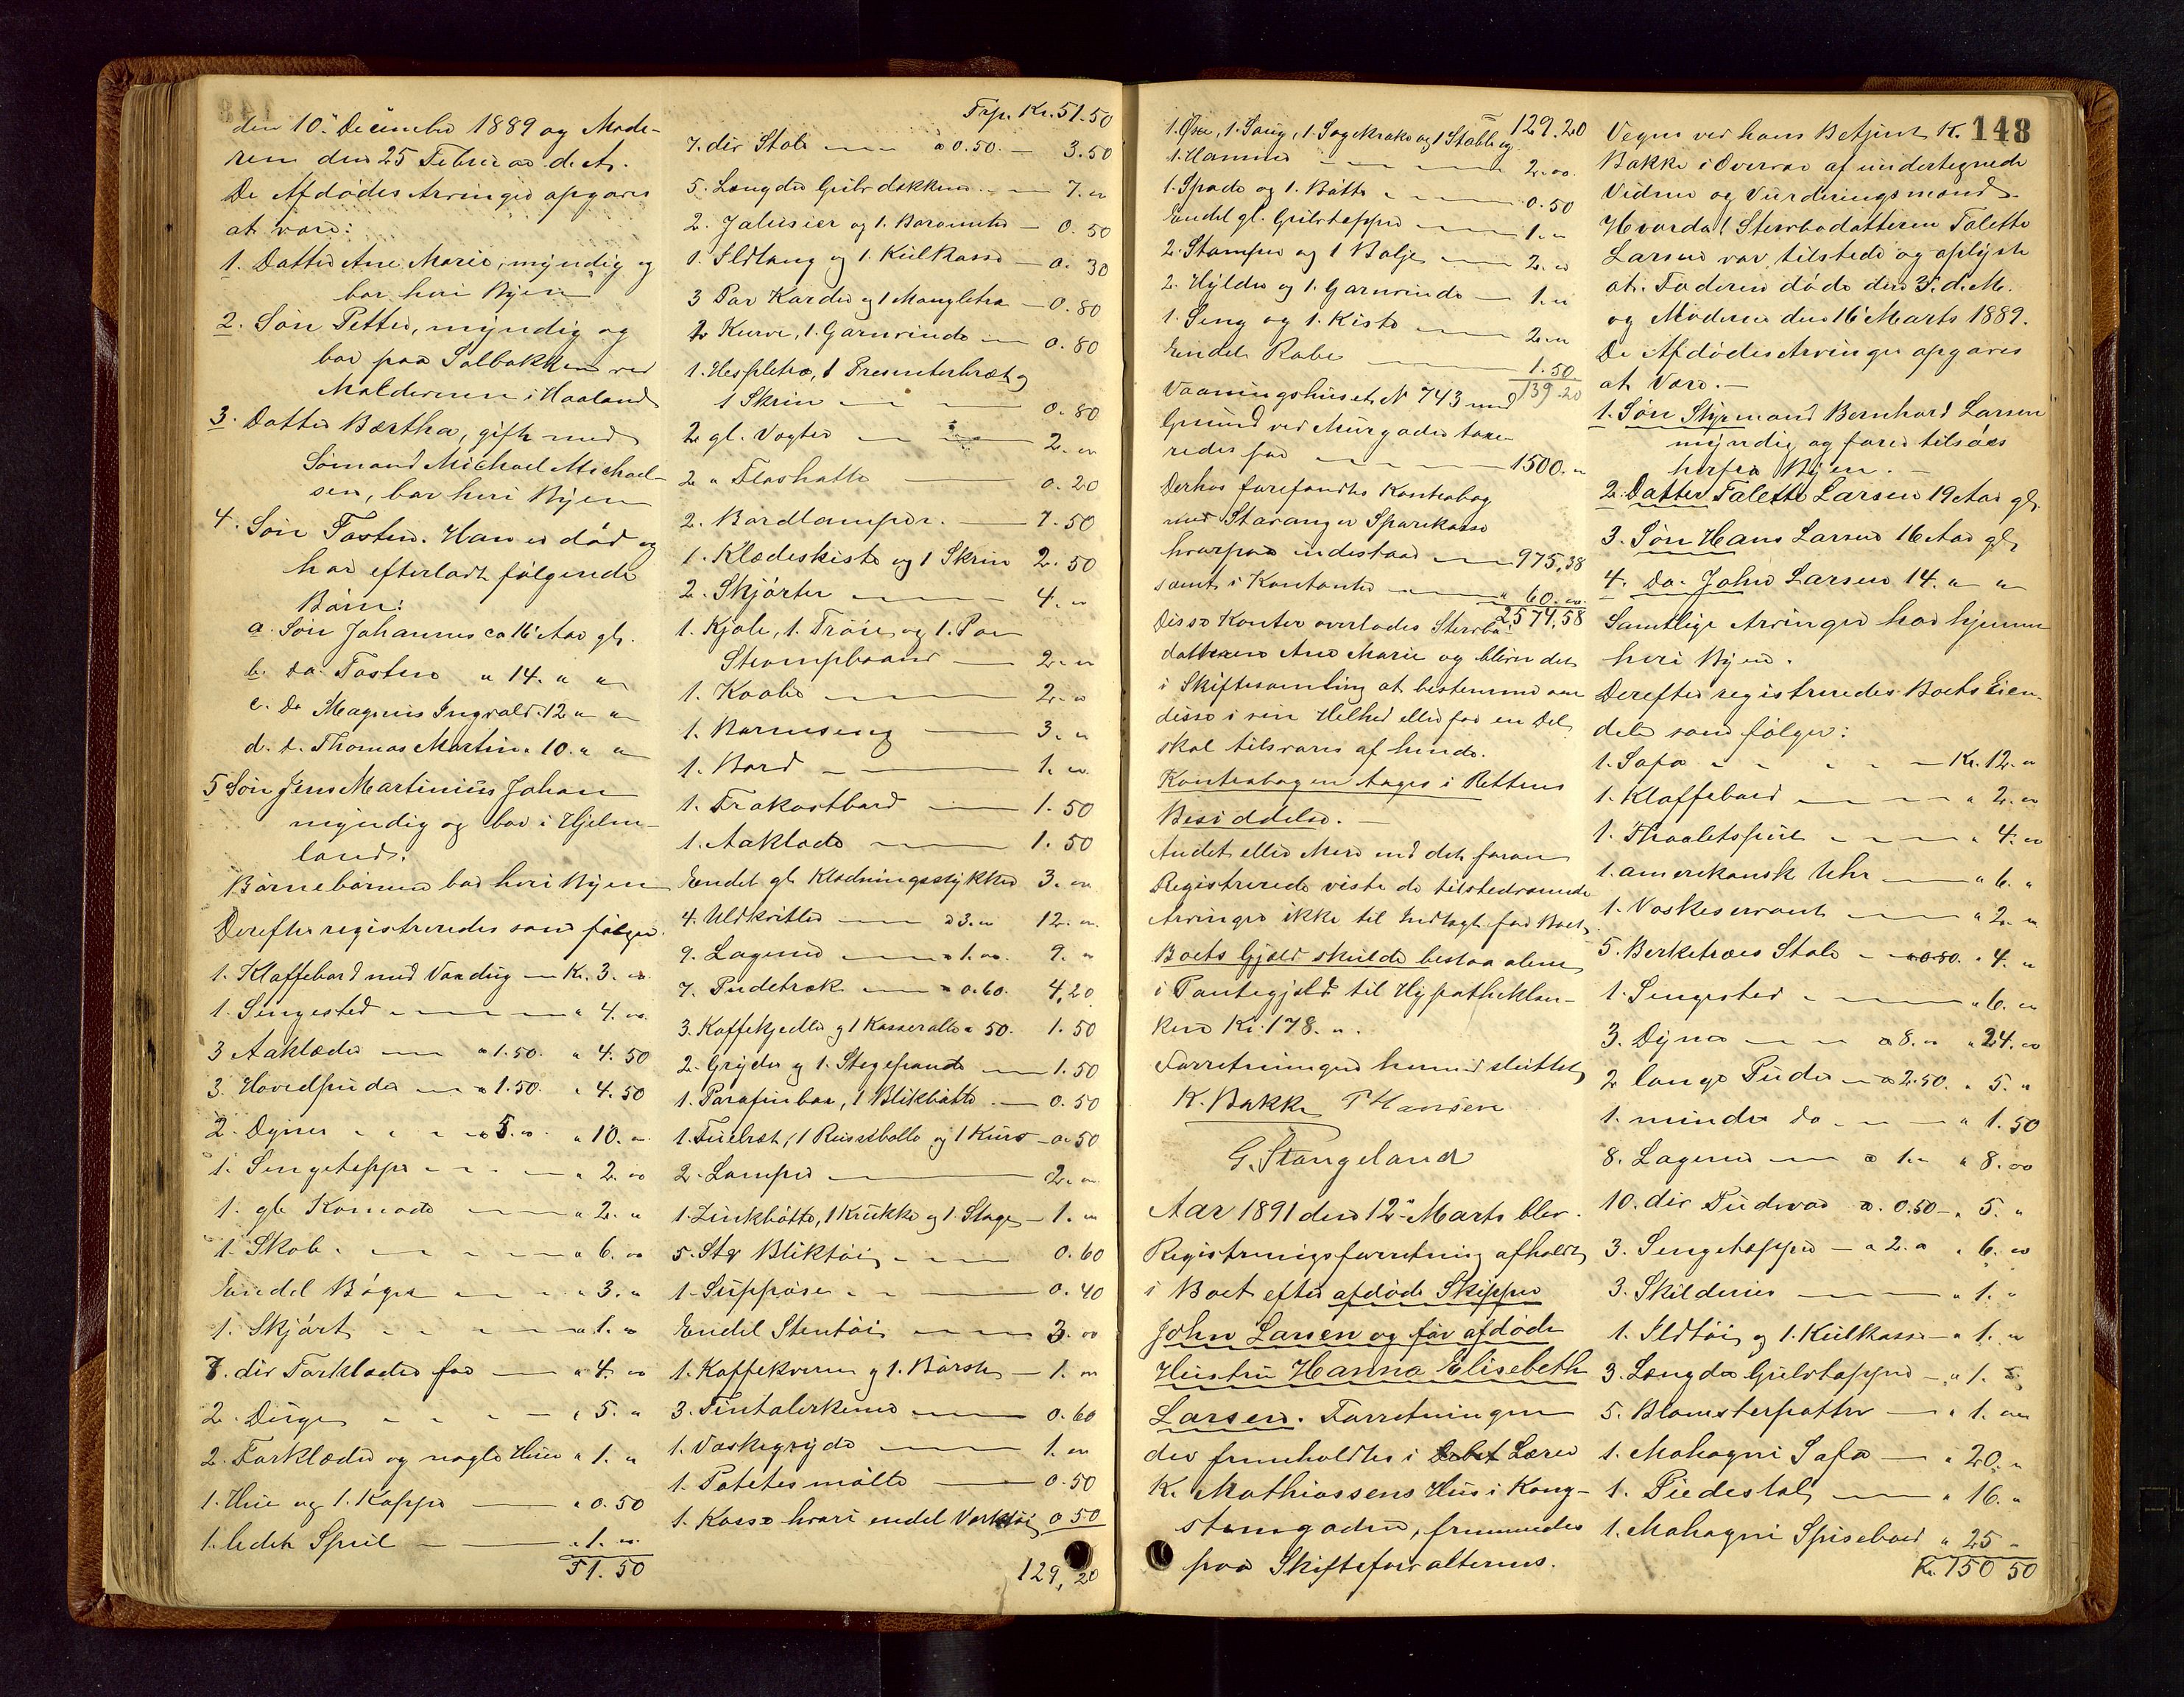 den 10. December 1889 og Mode-
ren den 25 Februar d. A.
De Afdødes Arvinger opgaves
at være:
1. Datter Ane Marie, myndig og
bor heri Byen
2. Søn Petter, myndig og
bor paa Solbakken ved
Maldermen i Haaland
3. Datter Bertha, gift med
Sømand Michael Michael-
sen, bor heri Byen
4. Søn Tosten. Han er død og
har efterladt følgende
Børn:
a. Søn Johannes ca 16 Aar gl.
b. Do. Tosten " 14. " "
c. Do Magnus Ingvald. 12 " "
d. d. Thomas Martin. 10. " "
5 Søn Jens Martinius Johan
myndig og bor i Hjelme-
land.
Børnebørnene bor heri Byen
Derefter registreredes som følger.
1. Klaffebord med Voxdug — Kr. 3. "
1. Sengested " 4. "
3 Aaklæder a 1.50. " 4.50
3. Hovedpuder a 1.50. " 4.50
2. Dyner a 5. " " 10. "
1. Sengeteppe " 2. "
1. gl. Komode " 2. "
1. Skab " 6. "
Endel Bøger " 3. "
1. Skjørt " 1. "
7. dir Forklæder for " 4. "
2. Duge " 5. "
2. Forklæder og nogle Huer " 1. "
1. Hue og 1. Kappe " 0.50
1. ledet Speil " 1. "
51.50
Trp. Kr. 51.50
7. dir Stole a 0.50. — 3.50
5. Længder Gulvdækken — 7. "
2. Jalusier og 1. Barometer — 0.50
1. Ildtang og 1. Kulkasse — 0.30
3 Par Karder og 1 Mangletræ — 0.80
2 Kurve, 1. Garnvinde — 0.80
1. Hespletræ, 1 Presenterbræt og
1 Skrin 0.80
2 gl. Vogter 2. "
2 " Floshatte 0.20
2. Bordlamper. 1.50
1. Klædeskiste og 1 Skrin 2.50
2. Skjørter 4. "
1. Kjole, 1. Trøie og 1. Par
Strømpbaand 2. "
1. Kaabe 2. "
1. Barneseng 3. "
1. Bord 1. "
1. Frokostbord 1.50
1. Aaklæde 1.50
Endel gl. Klædningsstykker 3. "
4. Uldkvitler a 3. " 12. "
9. Lagener a 1. " 9. "
7. Pudetræk a 0.60. 4,20
3. Kaffekjedler og 1 Kasserolle a 50. 1.50
2. Gryder og 1. Stegepande 1.50
1. Parafinkan, 1 Blikbøtte 0.50
1. Fuelræt, 1 Punschbolle og 1 Kurv — 0.50
2. Lamper 2. "
1. Zinkbøtte, 1 Krukke og 1. Stage — 1. "
5. Stkr Bliktøi 0.60
1. Suppøse 0.40
Endel Stentøi 3. "
1. Kaffekvern og 1. Børste — 1. "
3. Tintalerkener 0.60
1. Vaskegryde 1. "
1. Potetesmølle 0.50
1. Kasse hvori endel Verktøi 0 50
129,20
129.20
1. Øxe, 1. Saug, 1. Sagkrakk og 1 Stabbe og
1. Hammer 2. "
1. Spade og 1. Bøtte 0.50
Endel gl. Gulvtepper 1. "
2. Stamper og 1 Balje 2. "
2. Hylder og 1. Garnvinde — 1. "
1. Seng og 1. Kiste 2. "
Endel Rabe 1.50
139.20
Vaaningshuset N 743 med
Grund ved Murgaden taxe-
redes for 1500. "
Derhos forefandtes Kontrabog
med Stavanger Sparekasse
hvorpaa indestaar 975,38
samt i Kontanter " 60. "
2574,58
Disse Konter overlades Sterbo-
datteren Ane Marie og bliver det
i Skiftesamling at bestemme om
disse i sin Helhed eller for en Del
skal tilsvares af hende.
Kontrabogen tages i Rettens
Besiddelse. —
Andet eller Mere end det foran
Registrerede viste de tilstedeværende
Arvinger ikke til Indtægt for Boet.
Boets Gjæld skulde bestaa alene
i Pantegjæld til Hypothekban-
ken Kr. 178. ".
Forretningen hermed sluttet,
K. Bakke T Hansen
G. Stangeland
Aar 1891 den 12. Marts blev
Registreringsforretning afholdt
i Boet efter afdøde Skipper
John Larsen og før afdøde
Hustru Hanna Elisebeth
Larsen. Forretningen
der fremholdtes i Lærer
K. Mathiassens Hus i Kong-
stengaden, fremmedes
paa Skifteforvalterens.
148
Vegne ved hans Betjent K.
Bakke i Overvær af undertegnede
Vidner og Vurderingsmænd.
Hvorda! Sterbodatteren Talette
Larsen var tilstede og oplyste
at Faderen døde den 3. d. M.
og Moderen den 16 Marts 1889.
De Afdødes Arvinger opgaves
at være. —
1. Søn Styrmand Bernhard Larsen
myndig og farer tilsøes
herfra Byen. —
2. Datter Talette Larsen 19 Aar gl.
3. Søn Hans Larsen 16 Aar gl.
4. Do. John Larsen 14. " "
Samtlige Arvinger har hjemme
heri Byen.
Derefter registreredes Boets Eien-
dele som følger:
1. Sofa — Kr. 12. "
1. Klaffebord " 2. "
1. Thoaletspeil " 4. "
1. amerikansk Uhr " 6. "
1. Vaskeservant " 2. "
5. Berketræes Stole a 0.80. " 4. "
1. Sengested " 6. "
3. Dyner a 8. " " 24. "
2 lange Puder a 2.50. " 5. "
1. mindre do. " 1.50
8. Lagener a 1. " " 8.00
10. dir Pudevar a. 0.50 — " 5. "
3. Sengetepper — a 2. " " 6. "
3. Skilderier " 1. "
1. Ildtøi og 1. Kulkasse — " 1. "
3. Længder Gulvtepper — " 1. "
5. Blomsterpotter — " 1. "
1. Mahogni Sofa — " 20. "
1. Piedestal — " 16. "
1. Mahogni Spisebord " 25 "
Kr. 150 50